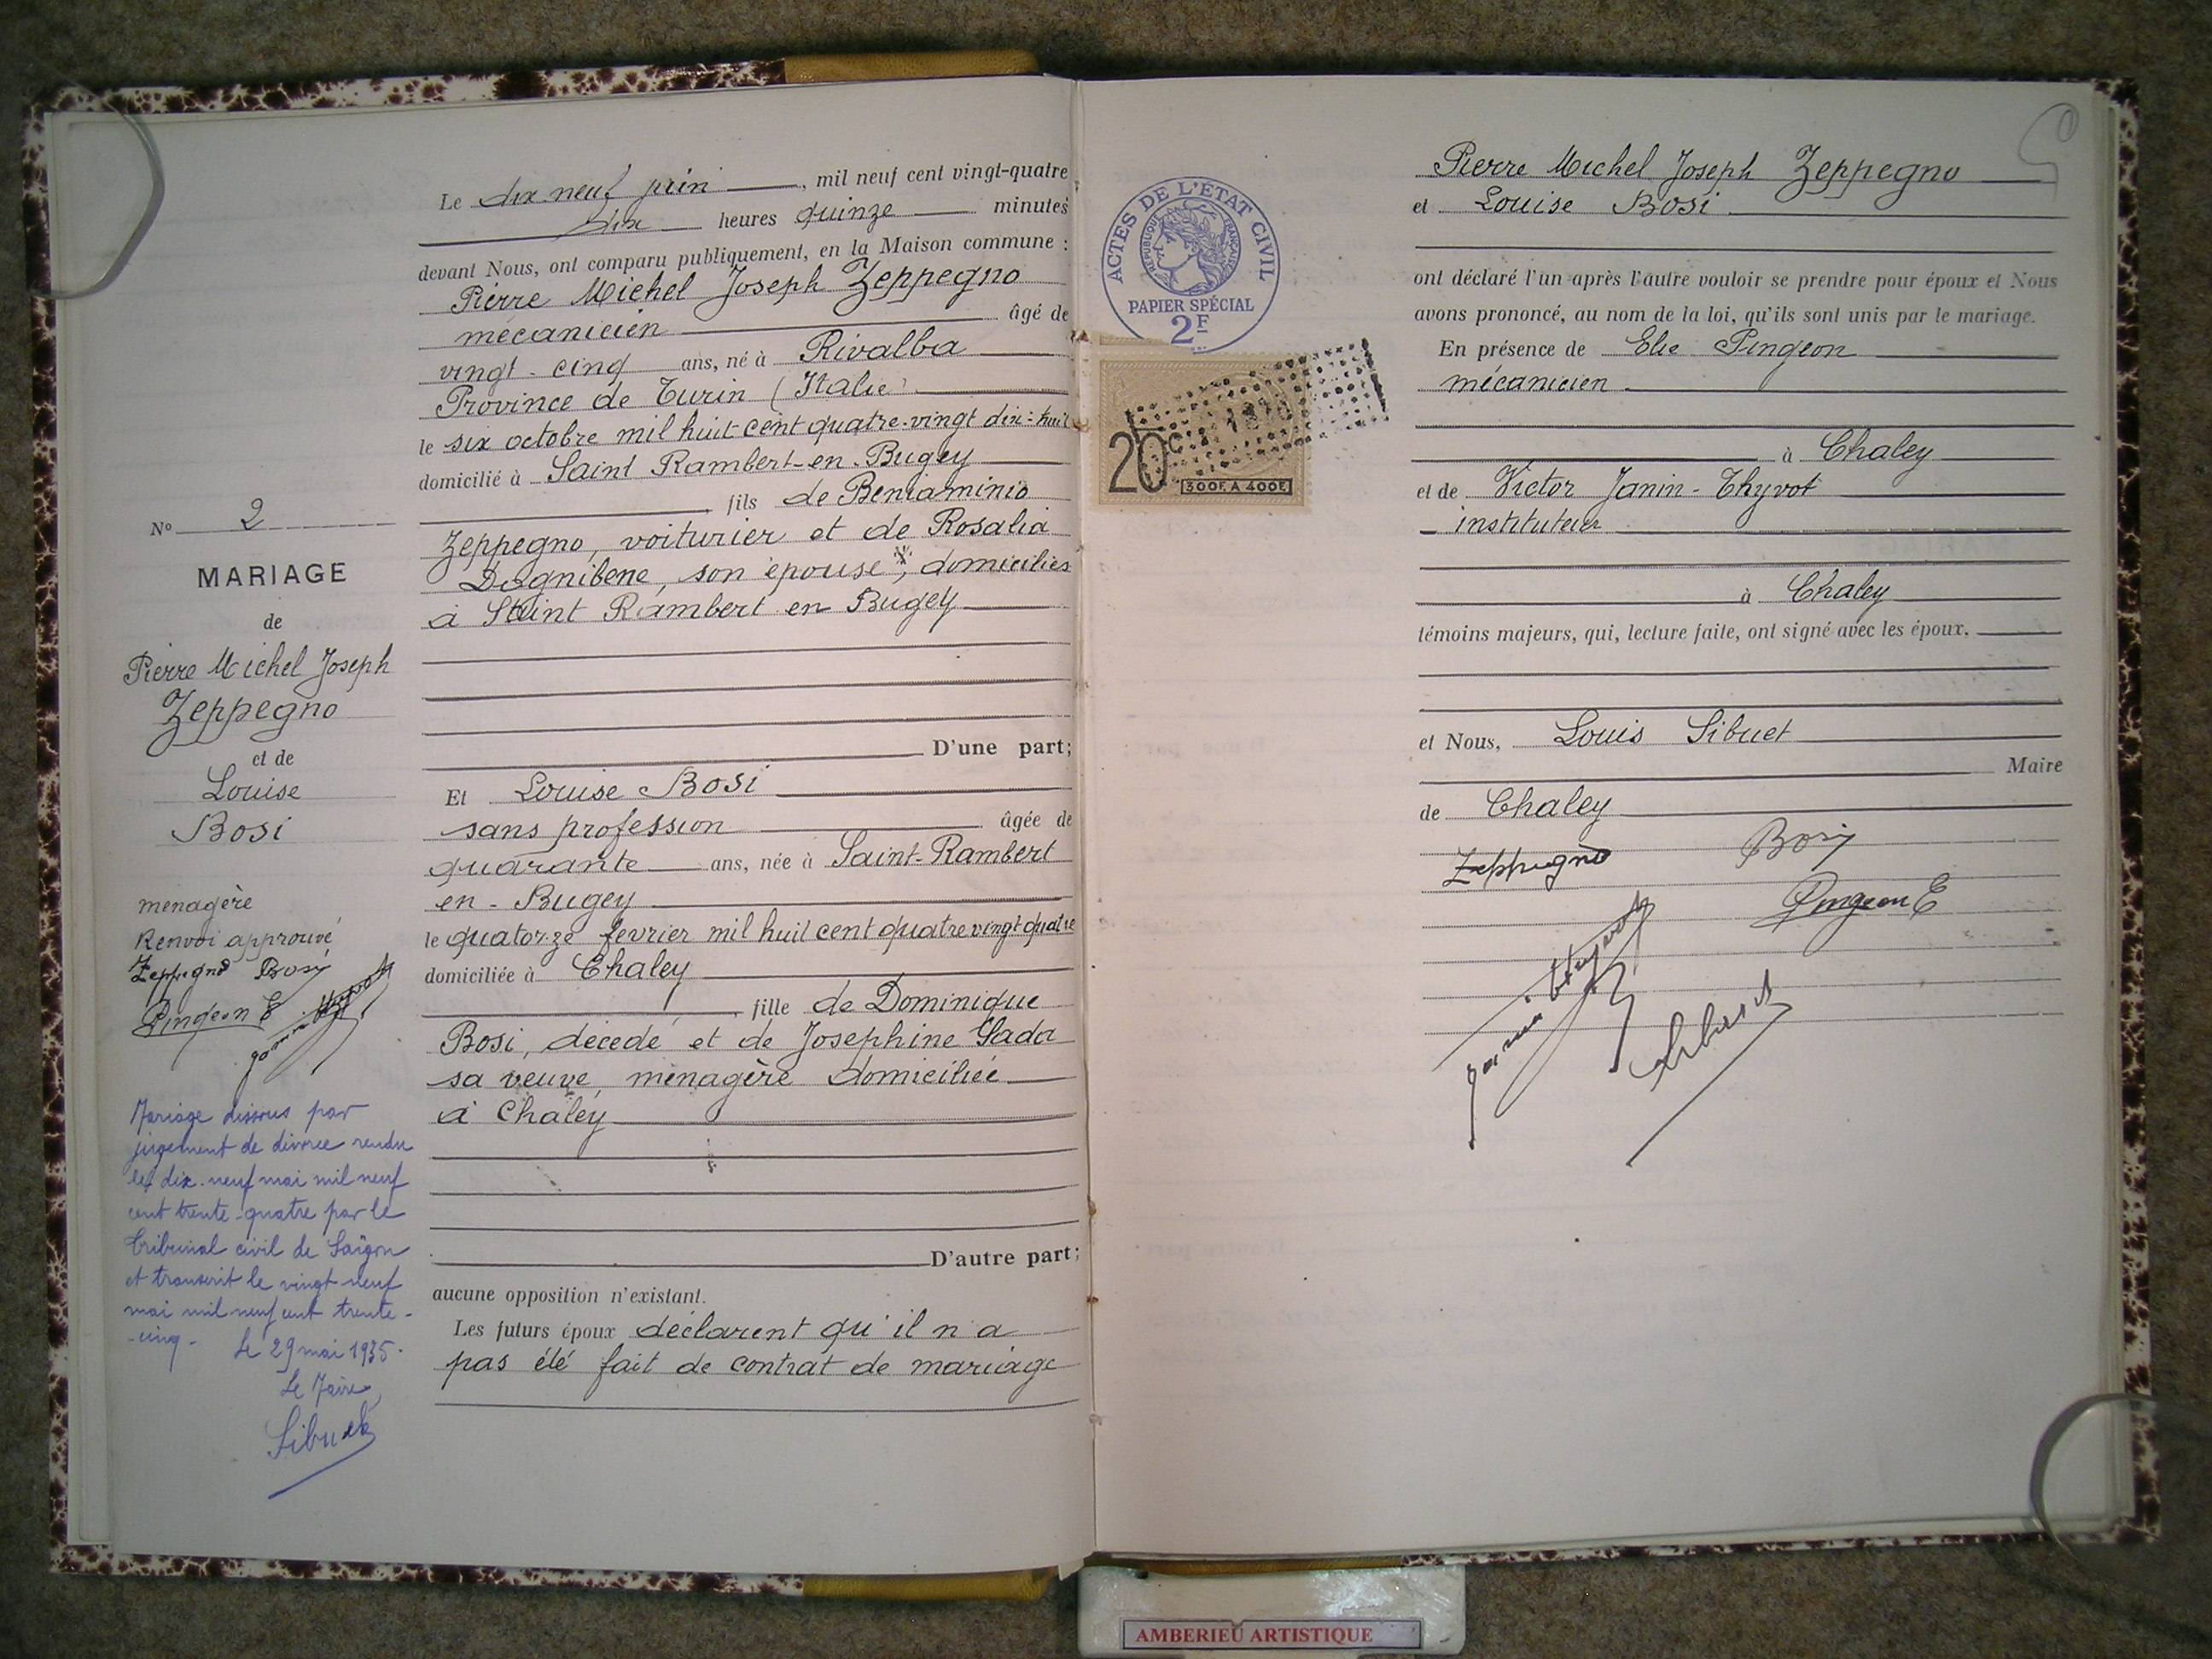 Le dix-neuf juin, mil neuf cent vingt-quatre
dix heures quinze minutes
devant Nous, ont comparu publiquement, en la Maison commune :
Pierre Michel Joseph Zeppegno
mécanicien âgé de
vingt-cinq ans, né à Rivalba
Province de Turin (Italie)
le six octobre mil huit cent quatre-vingt dix-huit
domicilié à Saint Rambert-en-Bugey
fils de Beniaminio
Zeppegno, voiturier et de Rosalia
Dognibene, son épouse, domiciliés
à Saint Rambert en Bugey
D'une part;
Et Louise Bosi
sans profession âgée de
quarante ans, née à Saint-Rambert
en-Bugey
le quatorze fevrier mil huit cent quatre vingt-quatre
domiciliée à Chaley
fille de Dominique
Bosi, décédé et de Josephine Gada
sa veuve, ménagère domiciliée
à Chaley
D'autre part;
aucune opposition n'existant.
Les futurs époux déclarent qu'il n'a
pas été fait de contrat de mariage
N° 2
MARIAGE
de
Pierre Michel Joseph
Zeppegno
et de
Louise
Bosi
menagère
Renvoi approuvé
Zeppegno Bosi
Pingeon E
Janin-Thyvot
Mariage dissous par
jugement de divorce rendu
le dix-neuf mai mil neuf
cent trente-quatre par le
tribunal civil de Saïgon
et transcrit le vingt-neuf
mai mil neuf cent trente-
-cinq- Le 29 mai 1935.
Le Maire,
Sibuet
ACTES DE L'ETAT CIVIL
REPUBLIQUE FRANÇAISE
PAPIER SPÉCIAL
2F
20c
300F. A 400F.
Pierre Michel Joseph Zeppegno
et Louise Bosi
ont déclaré l'un après l'autre vouloir se prendre pour époux et Nous
avons prononcé, au nom de la loi, qu'ils sont unis par le mariage.
En présence de Elie Pingeon
mécanicien
à Chaley
et de Victor Janin-Thyvot
instituteur
à Chaley
témoins majeurs, qui, lecture faite, ont signé avec les époux.
et Nous, Louis Sibuet
Maire
de Chaley
Zeppegno Bosi
Pingeon E
Janin-Thyvot
Sibuet
AMBERIEU ARTISTIQUE